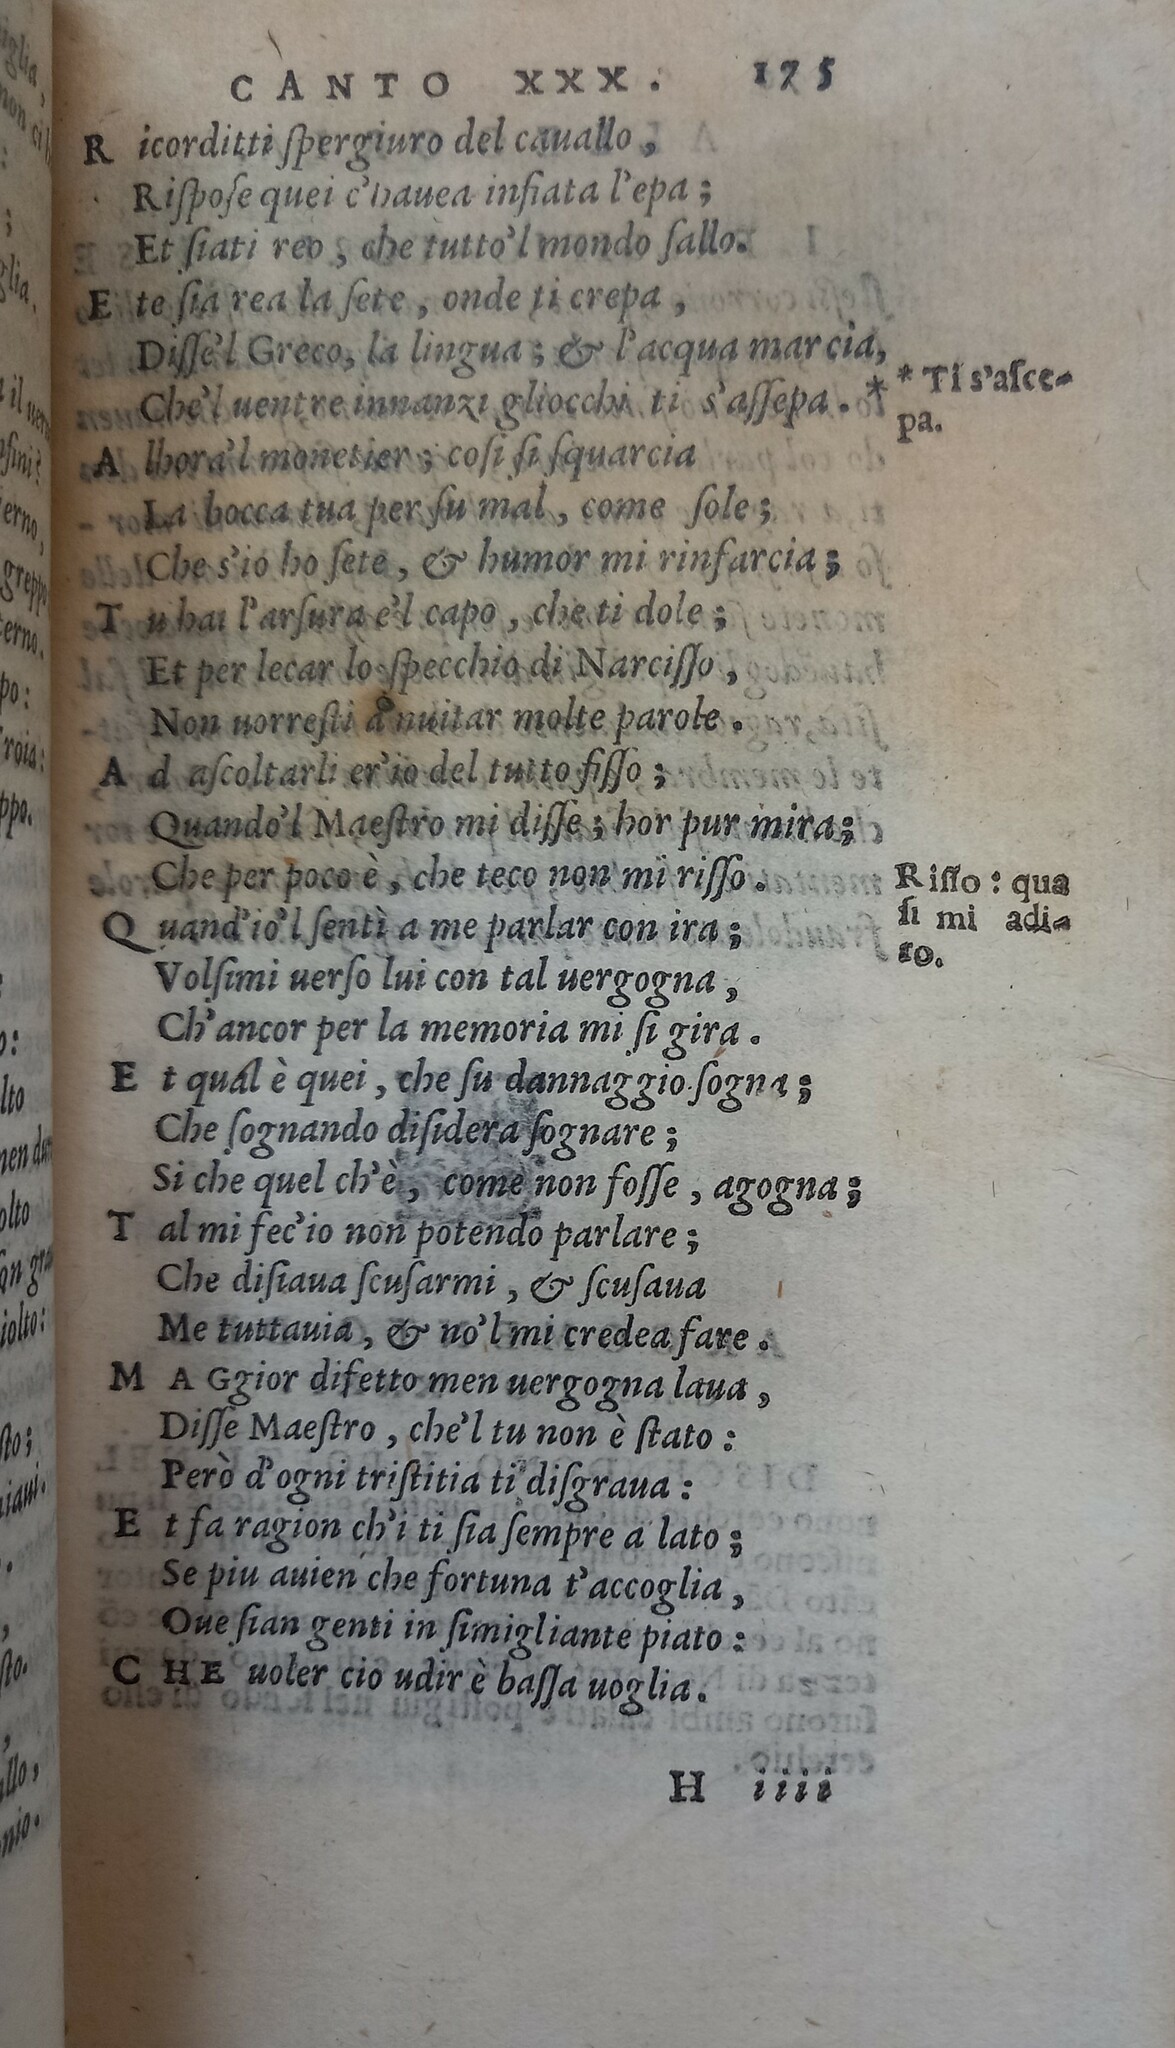 CANTO XXX. 175
Ricorditti ſpergiuro del cauallo,
Riſpoſe quei c'hauea infiata l'epa;
Et ſiati reo, che tutto'l mondo ſallo.
E te ſia rea la ſete, onde ti crepa,
Diſſe'l Greco, la lingua; & l'acqua marcia,
Che'l uentre innanzi gliocchi ti s'aſſepa. *
* Ti s'aſce-
pa.
Alhora'l monetier; coſi ſi ſquarcia
La bocca tua per ſu mal, come ſole;
Che s'io ho ſete, & humor mi rinfarcia;
Tu hai l'arſura e'l capo, che ti dole;
Et per lecar lo ſpecchio di Narciſſo,
Non uorreſti a nuitar molte parole.
Ad aſcoltarli er'io del tutto fiſſo;
Quando'l Maeſtro mi diſſe; hor pur mira;
Che per poco è, che teco non mi riſſo.
Riſſo: qua
ſi mi adi-
ro.
Quand'io'l ſentì a me parlar con ira;
Volſimi uerſo lui con tal uergogna,
Ch'ancor per la memoria mi ſi gira.
Et qual è quei, che ſu dannaggio ſogna;
Che ſognando diſidera ſognare;
Si che quel ch'è, come non foſſe, agogna;
Tal mi fec'io non potendo parlare;
Che diſiaua ſcuſarmi, & ſcuſaua
Me tuttauia, & no'l mi credea fare.
MAGgior difetto men uergogna laua,
Diſſe Maeſtro, che'l tu non è ſtato:
Però d'ogni triſtitia ti diſgraua:
Et fa ragion ch'i ti ſia ſempre a lato;
Se piu auien che fortuna t'accoglia,
Oue ſian genti in ſimigliante piato:
CHE uoler cio udir è baſſa uoglia.
H iiii